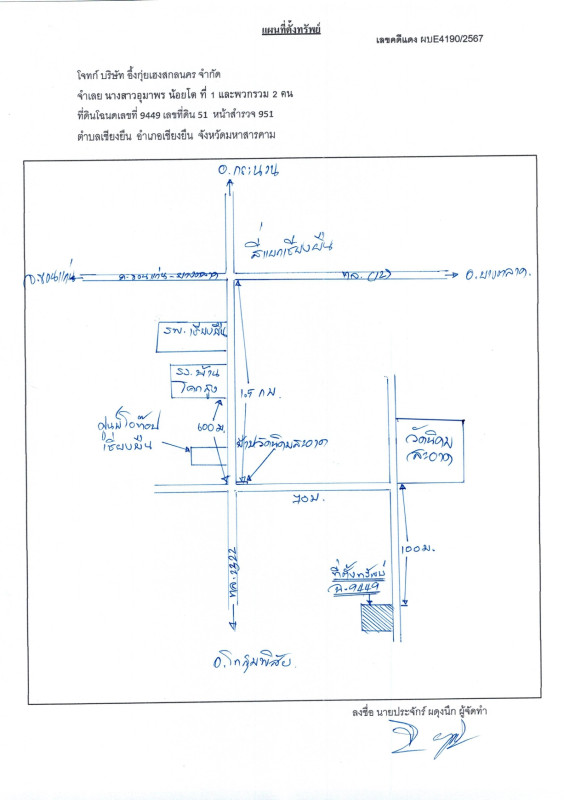 แผนที่ตั้งทรัพย์
เลขคดีแดง ผบE4190/2567
โจทก์ บริษัท อึ้งกุ่ยเฮงสกลนคร จำกัด
จำเลย นางสาวอุมาพร น้อยโต ที่ 1 และพวกรวม 2 คน
ที่ดินโฉนดเลขที่ 9449 เลขที่ดิน 51 หน้าสำรวจ 951
ตำบลเชียงยืน อำเภอเชียงยืน จังหวัดมหาสารคาม
อ.กระนวน
สี่แยกเชียงยืน
จ.ขอนแก่น
ถ.ขอนแก่น-ยางตลาด
ทล.(12)
อ.ยางตลาด.
รพ.เชียงยืน
รร.บ้าน
โคกสูง
1.5 กม.
600 ม.
ศูนย์โอท็อป
เชียงยืน
ป้ายวัดนิคมสะอาด
วัดนิคม
สะอาด
70 ม.
100 ม.
ทล.2322
ที่ตั้งทรัพย์
ฉ.9449
อ.โกสุมพิสัย.
ลงชื่อ นายประจักร์ ผดุงนึก ผู้จัดทำ